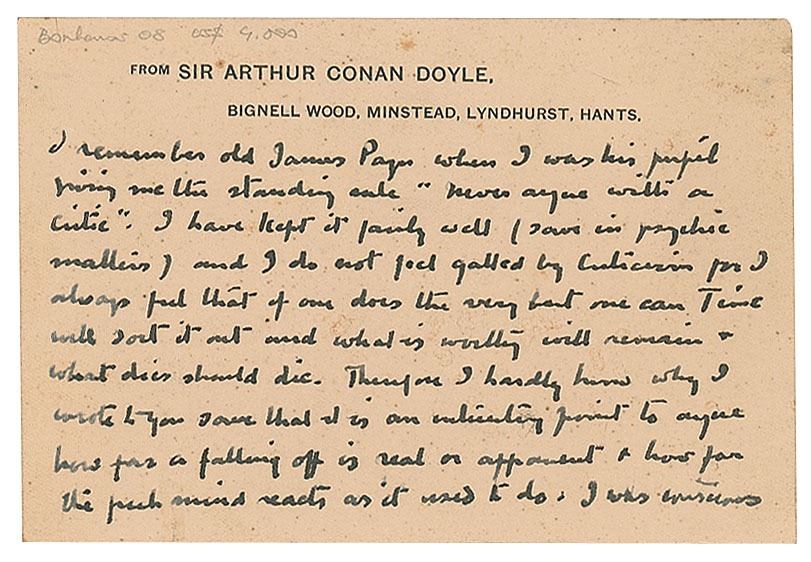 Bonhams 08 US$ 9,000
FROM SIR ARTHUR CONAN DOYLE,
BIGNELL WOOD, MINSTEAD, LYNDHURST, HANTS.
I remember old James Payn when I was his pupil
giving me the standing rule "Never argue with a
critic". I have kept it fairly well (save in psychic
matters) and I do not feel galled by criticism for I
always feel that if one does the very best one can Time
will sort it out and what is worthy will remain &
what dies should die. Therefore I hardly know why I
wrote to you save that it is an interesting point to argue
how far a falling off is real or apparent & how far
the fresh mind reacts as it used to do. I was conscious